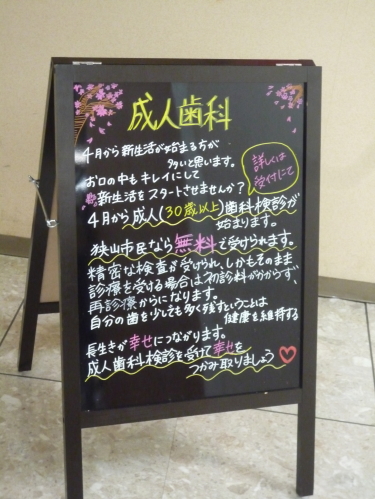 成人歯科
4月から新生活が始まる方が
多いと思います。
お口の中もキレイにして
新生活をスタートさせませんか?
詳しくは
受付にて
4月から成人(30歳以上)歯科検診が
始まります。
狭山市民なら無料で受けられます。
精密な検査が受けられ、しかもそのまま
診療を受ける場合は初診料がかからず、
再診療からになります。
自分の歯を少しでも多く残すということは
健康を維持する
長生きが幸せにつながります。
成人歯科検診を受けて幸せを
つかみ取りましょう